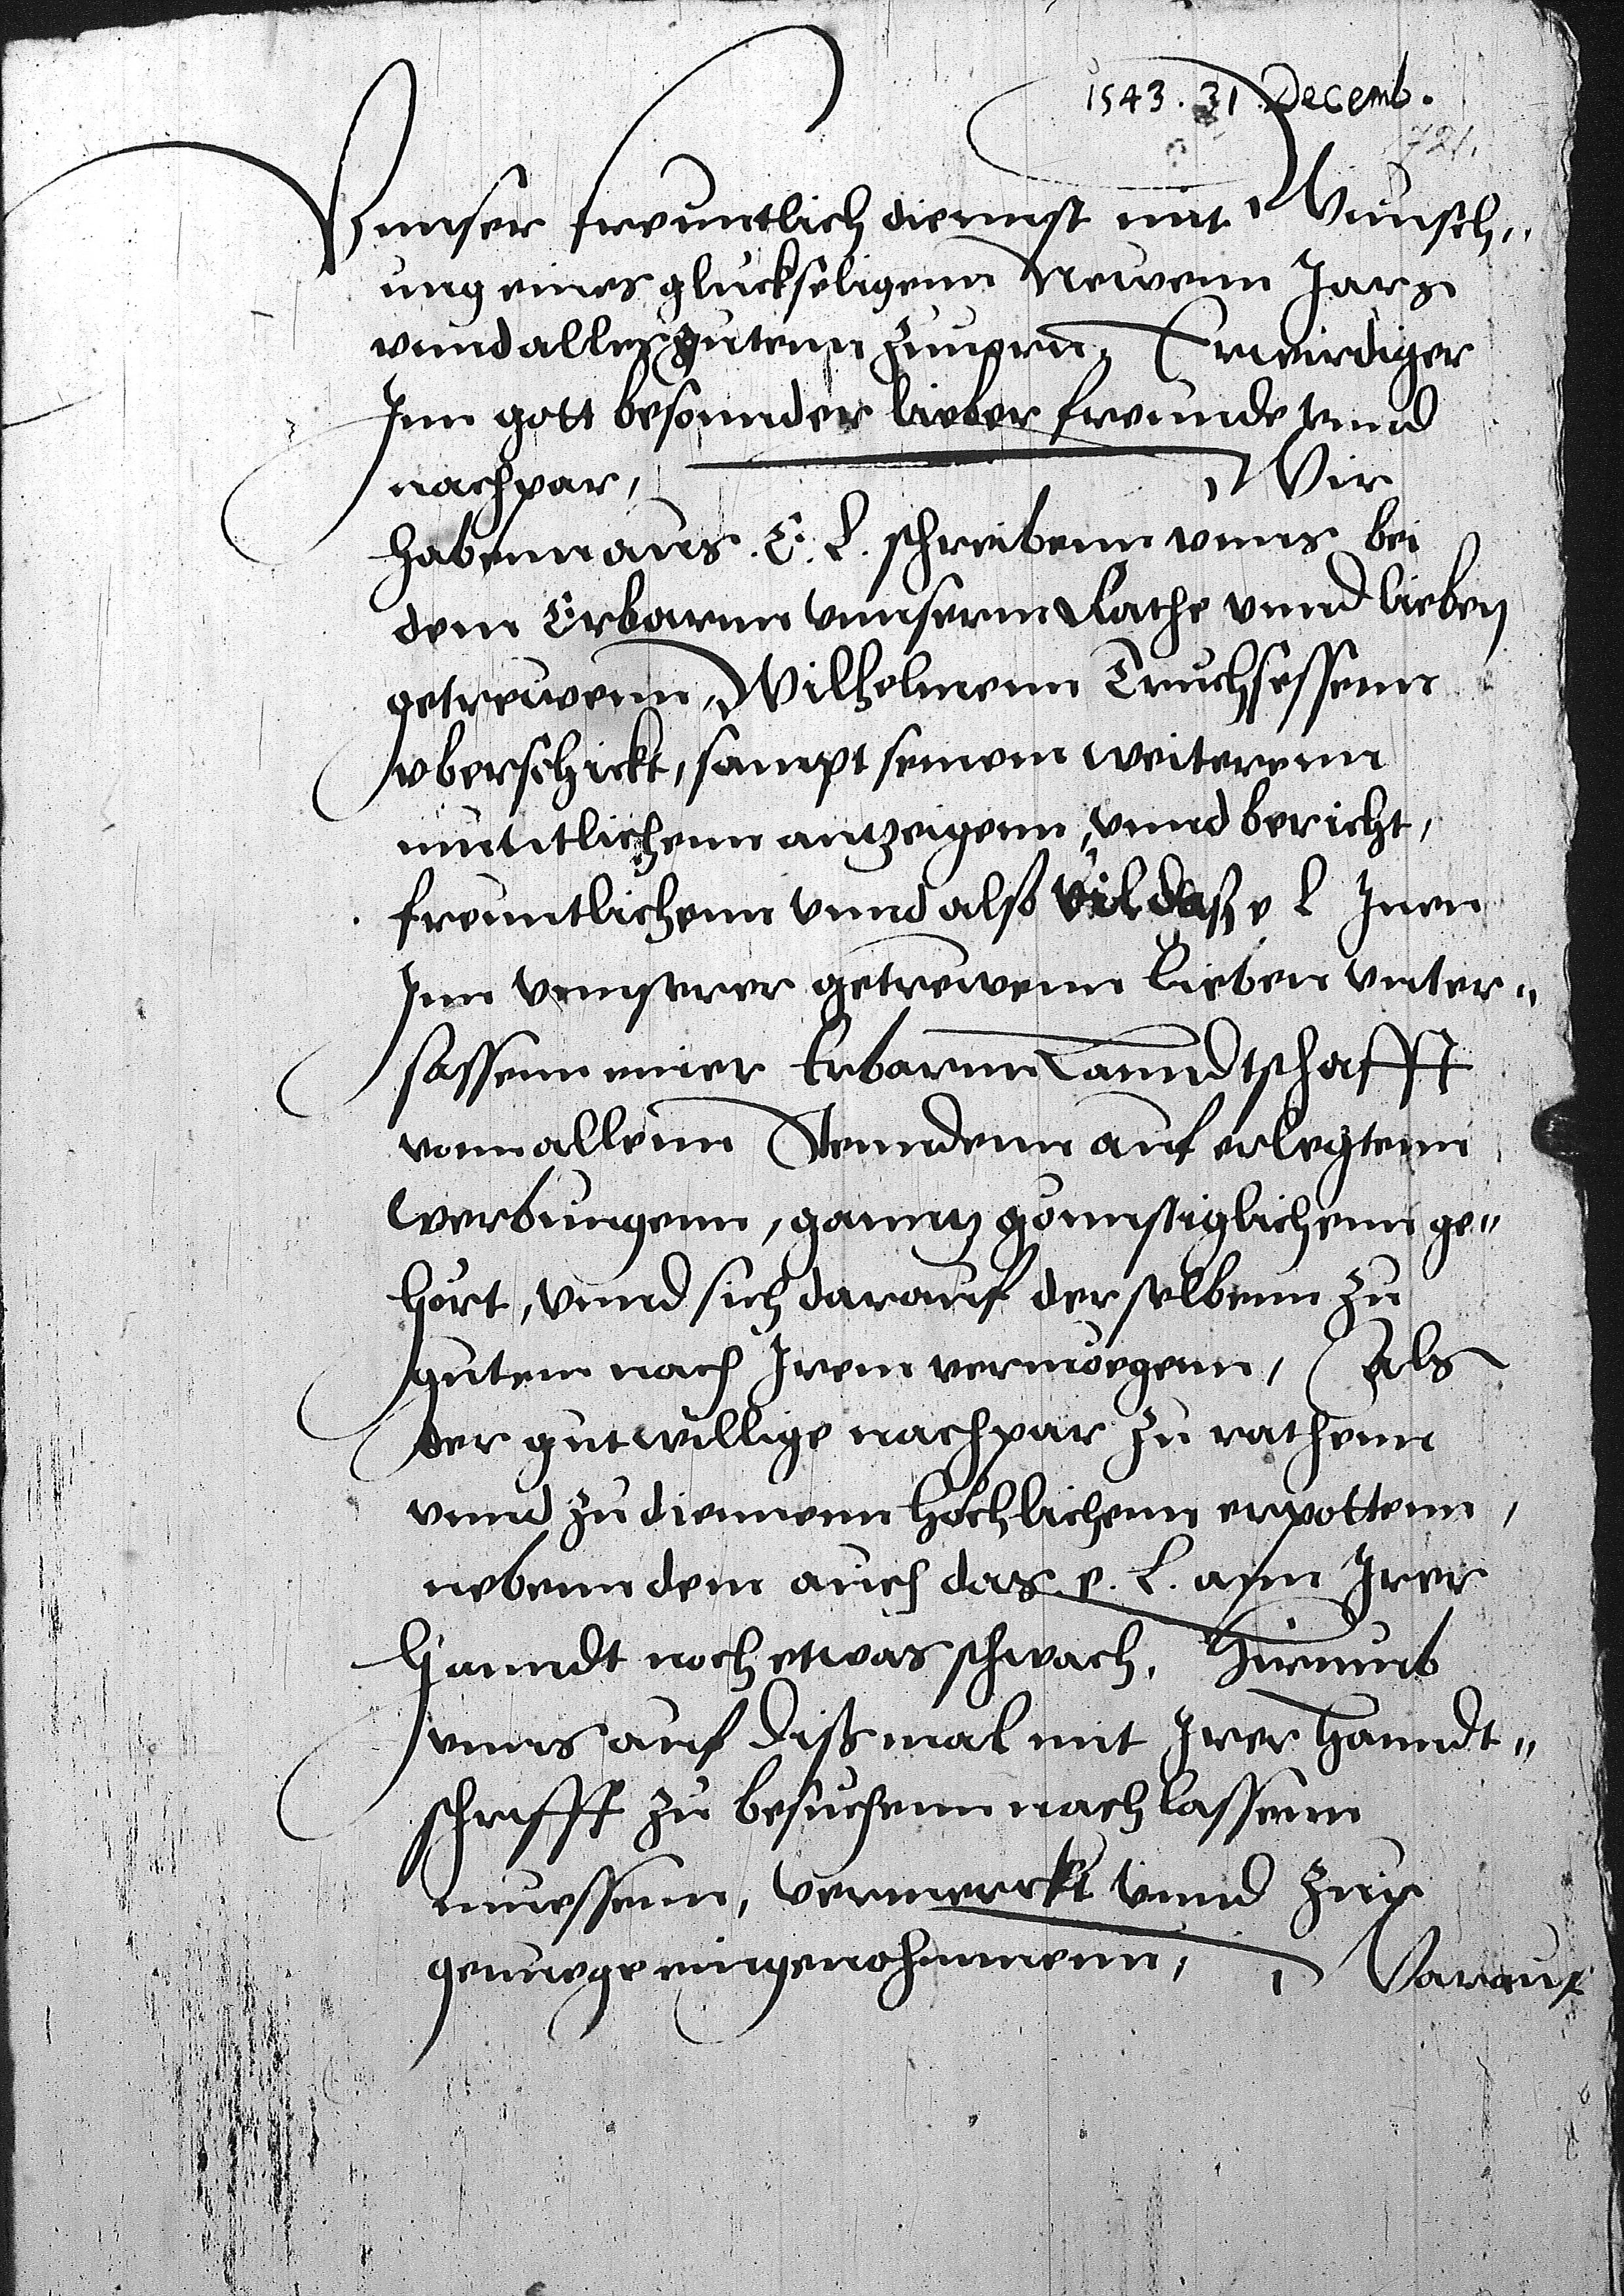 1543. 31. Decemb.
721.
Vnnser freuntlich diennst mit Wunsch„
ung eines gluckseligenn Newenn Jars
vnnd alles gutenn zuuorn, Erwirdiger
Inn gott besonnder lieber freunde vnnd
nachpar, Wir
habenn aus. E. L. schreibenn vnns bei
dem Erbarnn vnnserm Rathe vnnd lieben
getrewenn, Wilhelmenn Truchsessenn
vberschickt, sampt seinem weiterenn
muntlichenn antzeigenn, vnnd bericht,
freuntlichenn vnnd also vil das e L Inen
Inn vnnserer getrewenn lieben vnter„
sassenn einer Erbarnn Lanndtschafft
vonn allenn Stenndenn auf erlegtenn
werbungenn, ganntz gonnstiglichenn ge„
hort, vnnd sich darauf derselbenn zu
gutem nach Irem vermoegenn, Als
der gutwillige nachpar zu rathenn
vnnd zu diennenn hochlichenn erpottenn,
nebenn dem auch das e. L. ann Irer
hanndt noch etwas schwach, Hirumb
vnns auf dissmal mit Irer hanndt„
schrifft zu besuchenn nachlassenn
muessenn, vermerckt vnnd zur
genuege eingenohmmenn, Darauf